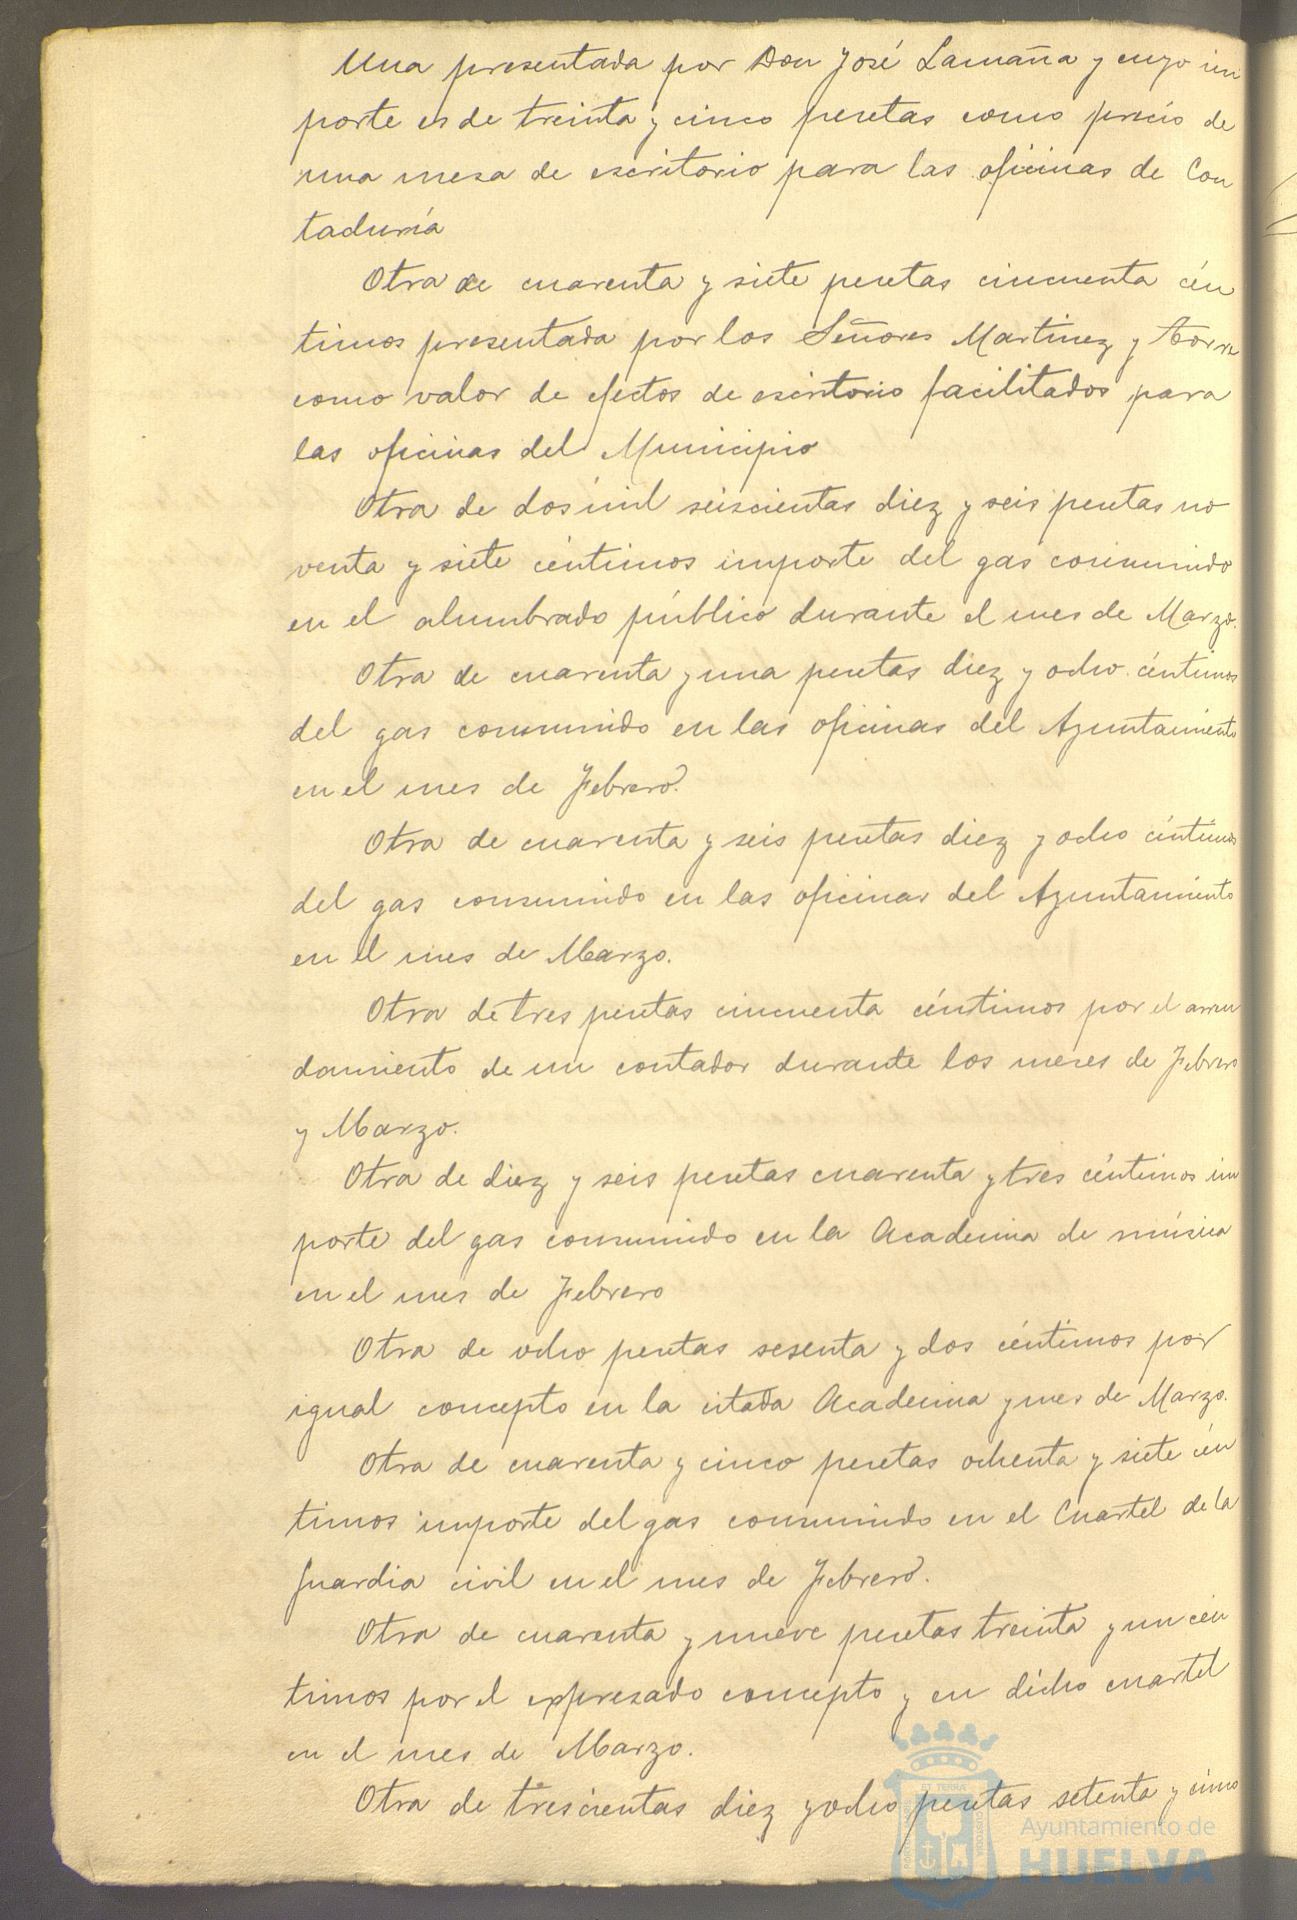 Una presentada por Don José Lamaña y cuyo im
porte es de treinta y cinco pesetas como precio de
una mesa de escritorio para las oficinas de Con
taduría
Otra de cuarenta y siete pesetas cincuenta cén
timos presentada por los Señores Martinez y
como valor de efectos de escritorio facilitados para
las oficinas del Municipio
Otra de dos mil seiscientas diez y seis pesetas no
venta y siete céntimos importe del gas consumido
en el alumbrado público durante el mes de Marzo.
Otra de cuarenta y una pesetas diez y ocho céntimos
del gas consumido en las oficinas del Ayuntamiento
en el mes de Febrero.
Otra de cuarenta y seis pesetas diez y ocho céntimos
del gas consumido en las oficinas del Ayuntamiento
en el mes de Marzo.
Otra de tres pesetas cincuenta céntimos por el arren
damiento de un contador durante los meses de Febrero
y Marzo.
Otra de diez y seis pesetas cuarenta y tres céntimos im
porte del gas consumido en la Academia de música
en el mes de Febrero
Otra de ocho pesetas sesenta y dos céntimos por
igual concepto en la citada Academia y mes de Marzo.
Otra de cuarenta y cinco pesetas ochenta y siete cén
timos importe del gas consumido en el Cuartel de la
Guardia civil en el mes de Febrero.
Otra de cuarenta y nueve pesetas treinta y un cén
timos por el expresado concepto y en dicho cuartel
en el mes de Marzo.
Otra de trescientas diez y ocho pesetas setenta y cinco
Ayuntamiento de
HUELVA